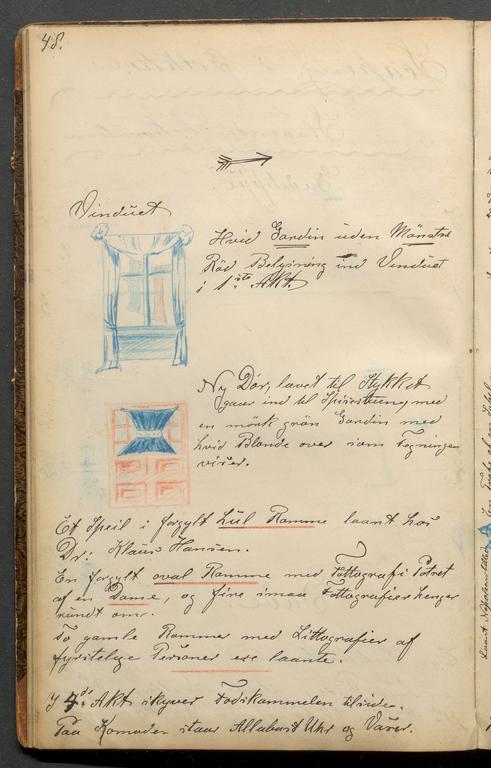 48.
Vinduet
Hvid Gardin uden Mönster
Röd Belysning ind Vinduet
i 1ste Akt.
Ny Dör, lavet til Stykket
gaar ind til Spisestuen, med
en mörk grön Gardin med
hvid Blonde over som Tegningen
viser.
Et Speil i forgylt hül Ramme laant hos
Dr: Klaus Hansen.
En forgylt oval Ramme med Fottografi Potret
af en Dame, og fire smaa Fottografier henger
rundt om.
To gamle Rammer med Littografier af
fyrstelige Personer ere laante.
I 4de Akt skyver Fodskammelen tilside.
Paa Komoden staar Allabast Uhr og Vaser.